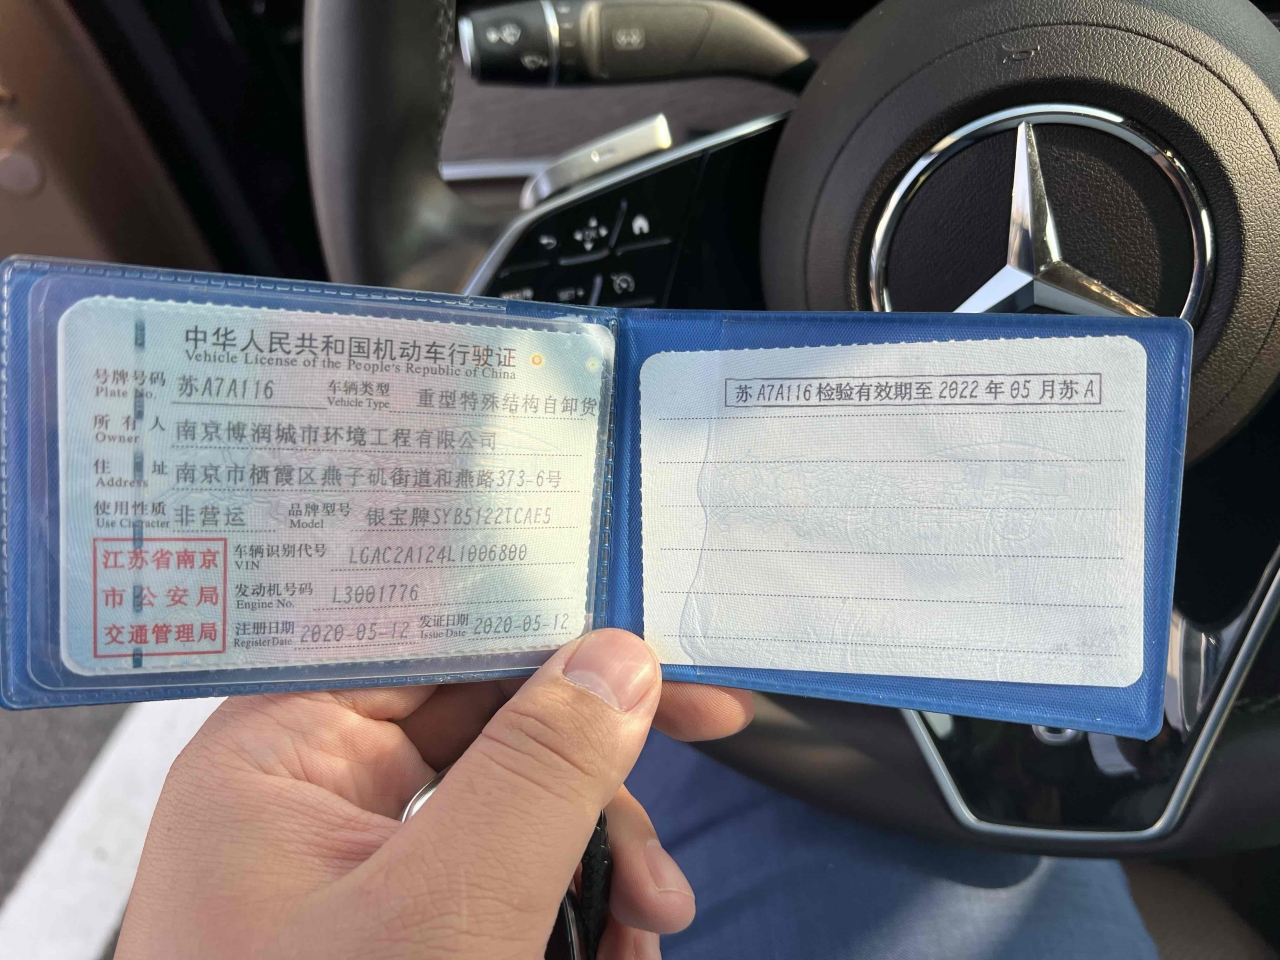 中华人民共和国机动车行驶证
Vehicle License of the People's Republic of China
号牌号码 苏A7A116 车辆类型 重型特殊结构自卸货
Plate No. Vehicle Type
所有人 南京博润城市环境工程有限公司
Owner
住址 南京市栖霞区燕子矶街道和燕路373-6号
Address
使用性质 非营运 品牌型号 银宝牌SYB5122TCAE5
Use Character Model
江苏省南京
市公安局
交通管理局
车辆识别代号 LGAC2A124L1006800
VIN
发动机号码 L3001776
Engine No.
注册日期 2020-05-12 发证日期 2020-05-12
Register Date Issue Date
苏A7A116检验有效期至2022年05月苏A